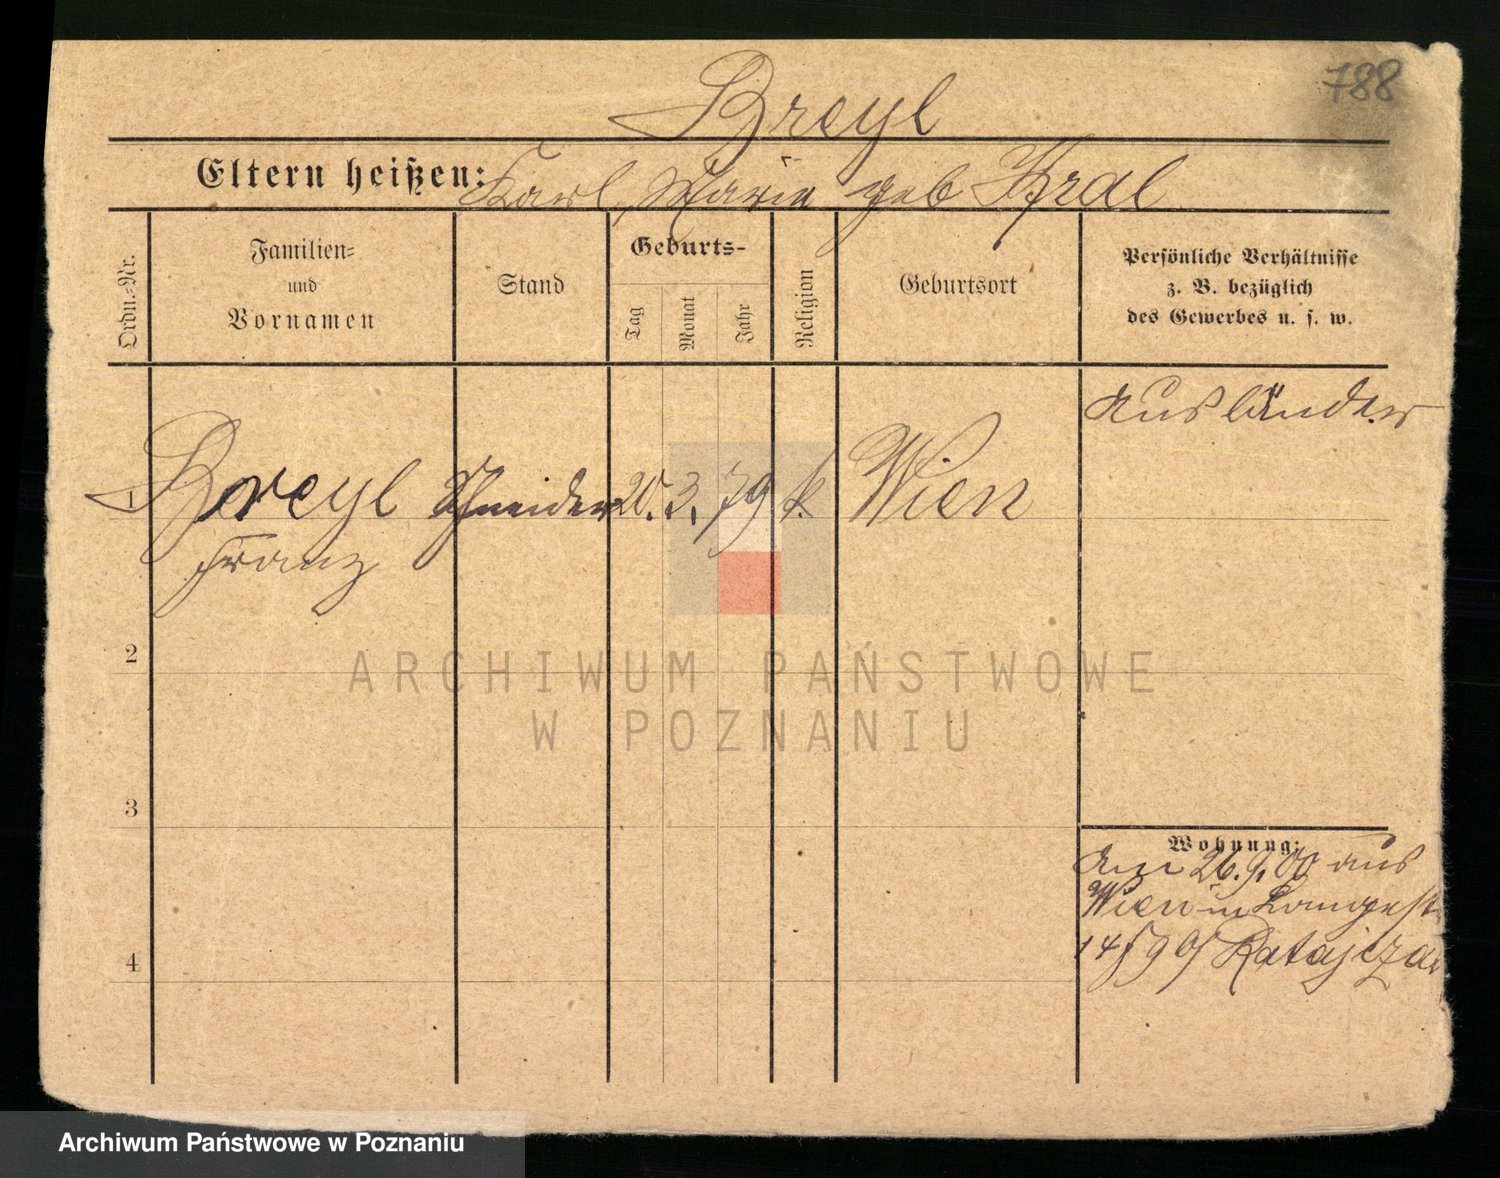 788
Breyl
Eltern heißen: Karl, Marie geb Kral
Ordn.-Nr.
Familien-
und
Vornamen
Stand
Geburts-
Tag
Monat
Jahr
Religion
Geburtsort
Persönliche Verhältnisse
z. B. bezüglich
des Gewerbes u. s. w.
Ausländer
1 Breyl Schneider 20. 3. 79 k. Wien
Franz
2
3
4
Wohnung:
den 26.9.00 aus
Wien in Langestr
14 Ratajcza
ARCHIWUM PAŃSTWOWE
W POZNANIU
Archiwum Państwowe w Poznaniu